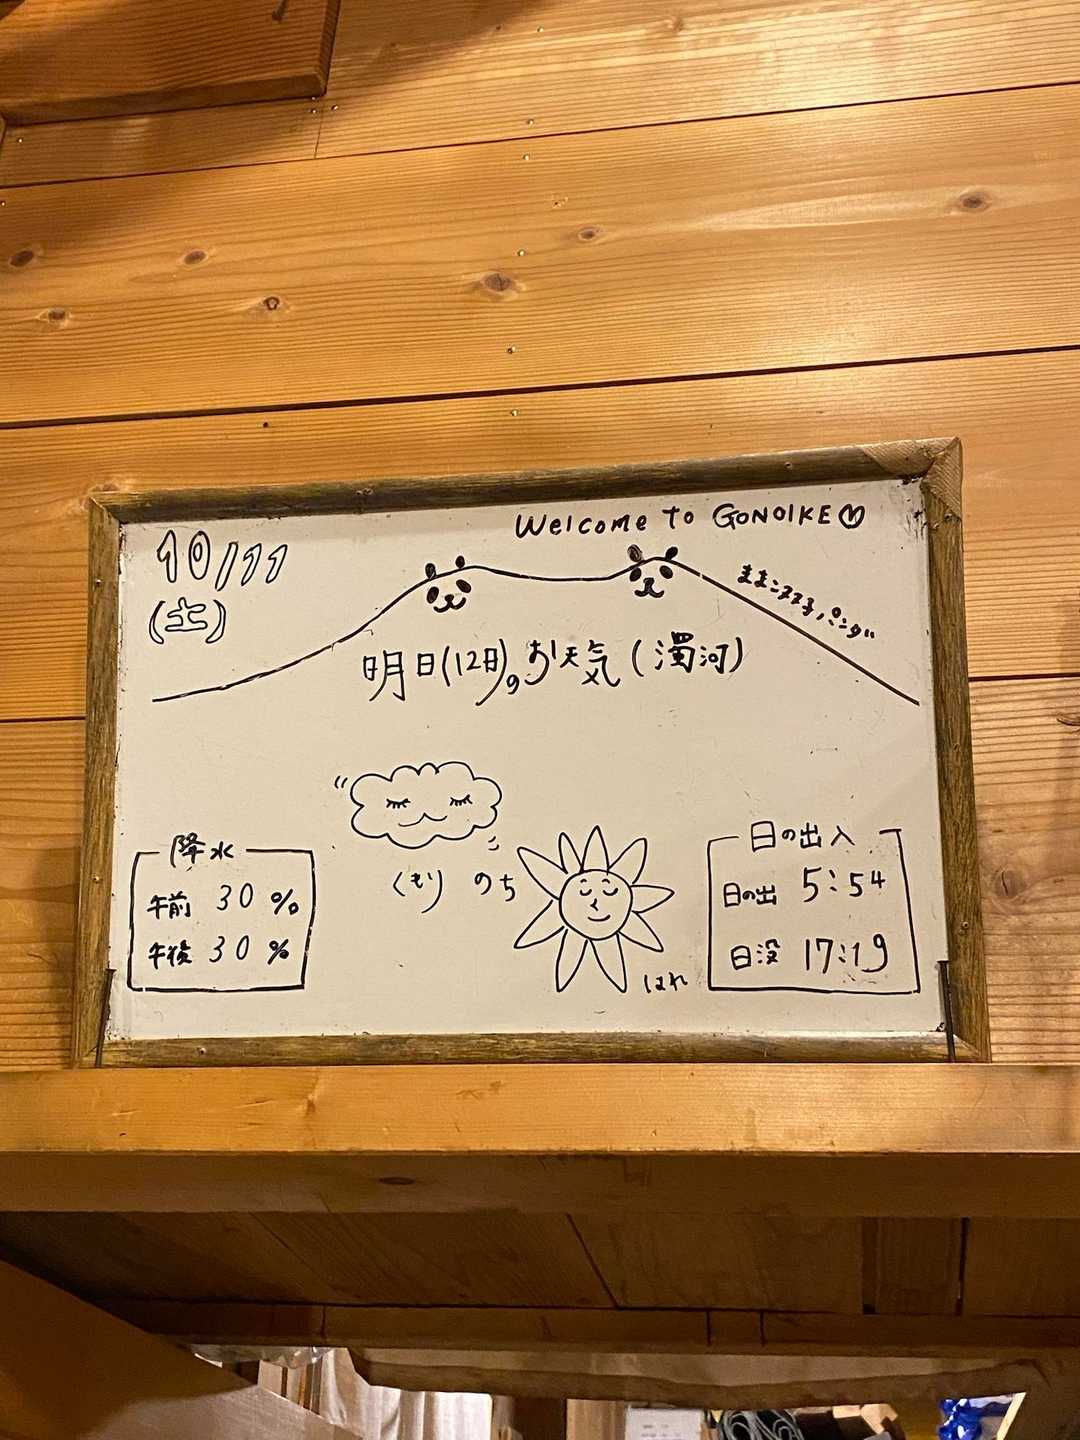 Welcome To GONOIKE
10/11
(土)
明日(12日)のお天気(濁河)
降水
午前 30%
午後 30%
くもり のち
はれ
日の出入
日の出 5:54
日没 17:19